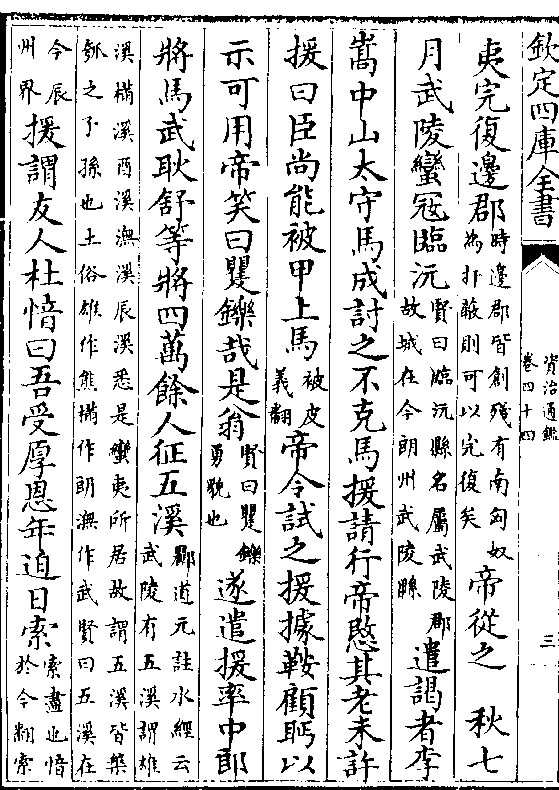 欽定四庫全書
資治通鑑
卷四十四
三
夷完復邊郡時邊郡皆創殘有南匈奴為扞蔽則可以完復矣帝從之　秋七
月武陵蠻冦臨沅賢曰臨沅縣名屬武陵郡故城在今朗州武陵縣遣謁者李
嵩中山太守馬成討之不克馬援請行帝愍其老未許
援曰臣尚能被甲上馬被皮義翻帝令試之援據鞍顧眄以
示可用帝笑曰矍鑠哉是翁賢曰矍鑠勇貌也遂遣援率中郎
將馬武耿舒等將四萬餘人征五溪酈道元註水經云武陵有五溪謂雄
溪樠溪酉溪潕溪辰溪悉是蠻夷所居故謂五溪皆槃瓠之子孫也土俗雄作熊樠作朗潕作武賢曰五溪在
今辰州界援謂友人杜愔曰吾受厚恩年迫日索索盡也愔於今翻索